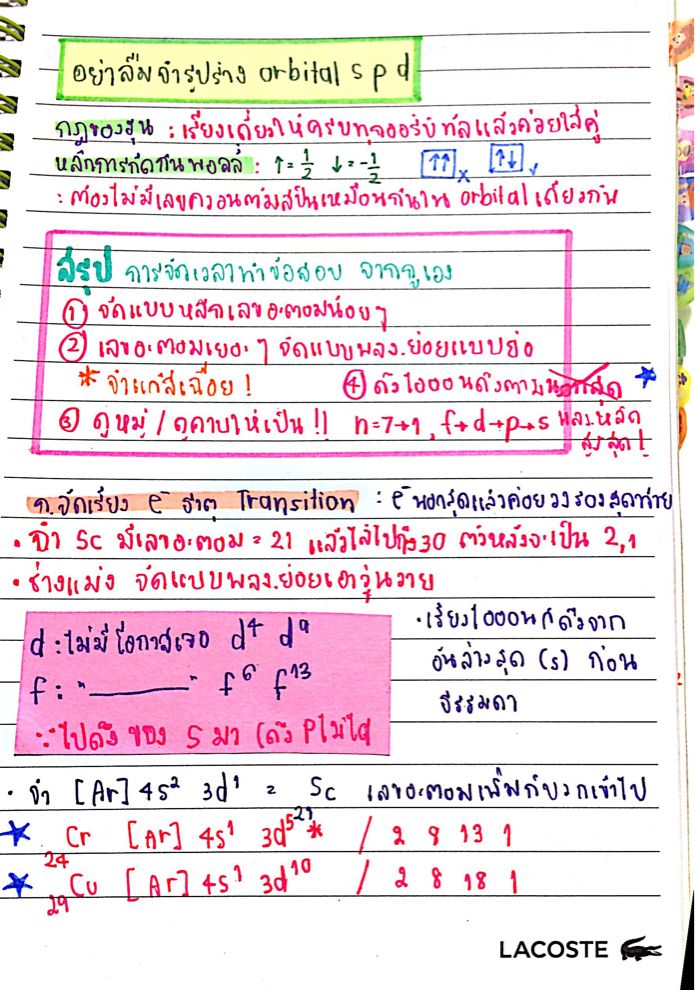 อย่าลืมจำรูปร่าง orbital s p d
กฎของฮุน : เรียงเดี่ยวให้ครบทุกออร์บิทัลแล้วค่อยใส่คู่
หลักการกีดกันพอลลี : ↑ = 1/2 ↓ = -1/2 ↑↑ x ↑↓ ✓
: ต้องไม่มีเลขควอนตัมสปินเหมือนกันใน orbital เดียวกัน
สรุป การจัดเวลาทำข้อสอบ จากกูเอง
① จัดแบบหลักเลขอะตอมน้อยๆ
② เลขอะตอมเยอะๆ จัดแบบพลง.ย่อยแบบย่อ
* จำแก๊สเฉื่อย ! ④ ดึงไอออนดึงตามนอกสุด
③ ดูหมู่ / ดูคาบให้เป็น !! n=7→1, f→d→p→s พลง.หลัก
สูงสุด !
ก.จัดเรียง e⁻ ธาตุ Transition : e⁻ นอกสุดแล้วค่อยวงรองสุดท้าย
• จำ Sc มีเลขอะตอม = 21 แล้วไล่ไปถึง 30 ตัวหลังจะเป็น 2,1
• ช่างแม่ง จัดแบบพลง.ย่อยเอาวุ่นวาย
d : ไม่มีโอกาสเจอ d⁴ d⁹
f : "————" f⁶ f¹³
∵ ไปดึงของ s มา (ดึง p ไม่ได้
• เรียงไอออนก็ดึงจาก
อันล่างสุด (s) ก่อน
ธรรมดา
• จำ [Ar] 4s² 3d¹ = Sc เลขอะตอมเพิ่มก็บวกเข้าไป
21
★ Cr [Ar] 4s¹ 3d⁵ * / 2 8 13 1
24
★ Cu [Ar] 4s¹ 3d¹⁰ / 2 8 18 1
29
LACOSTE